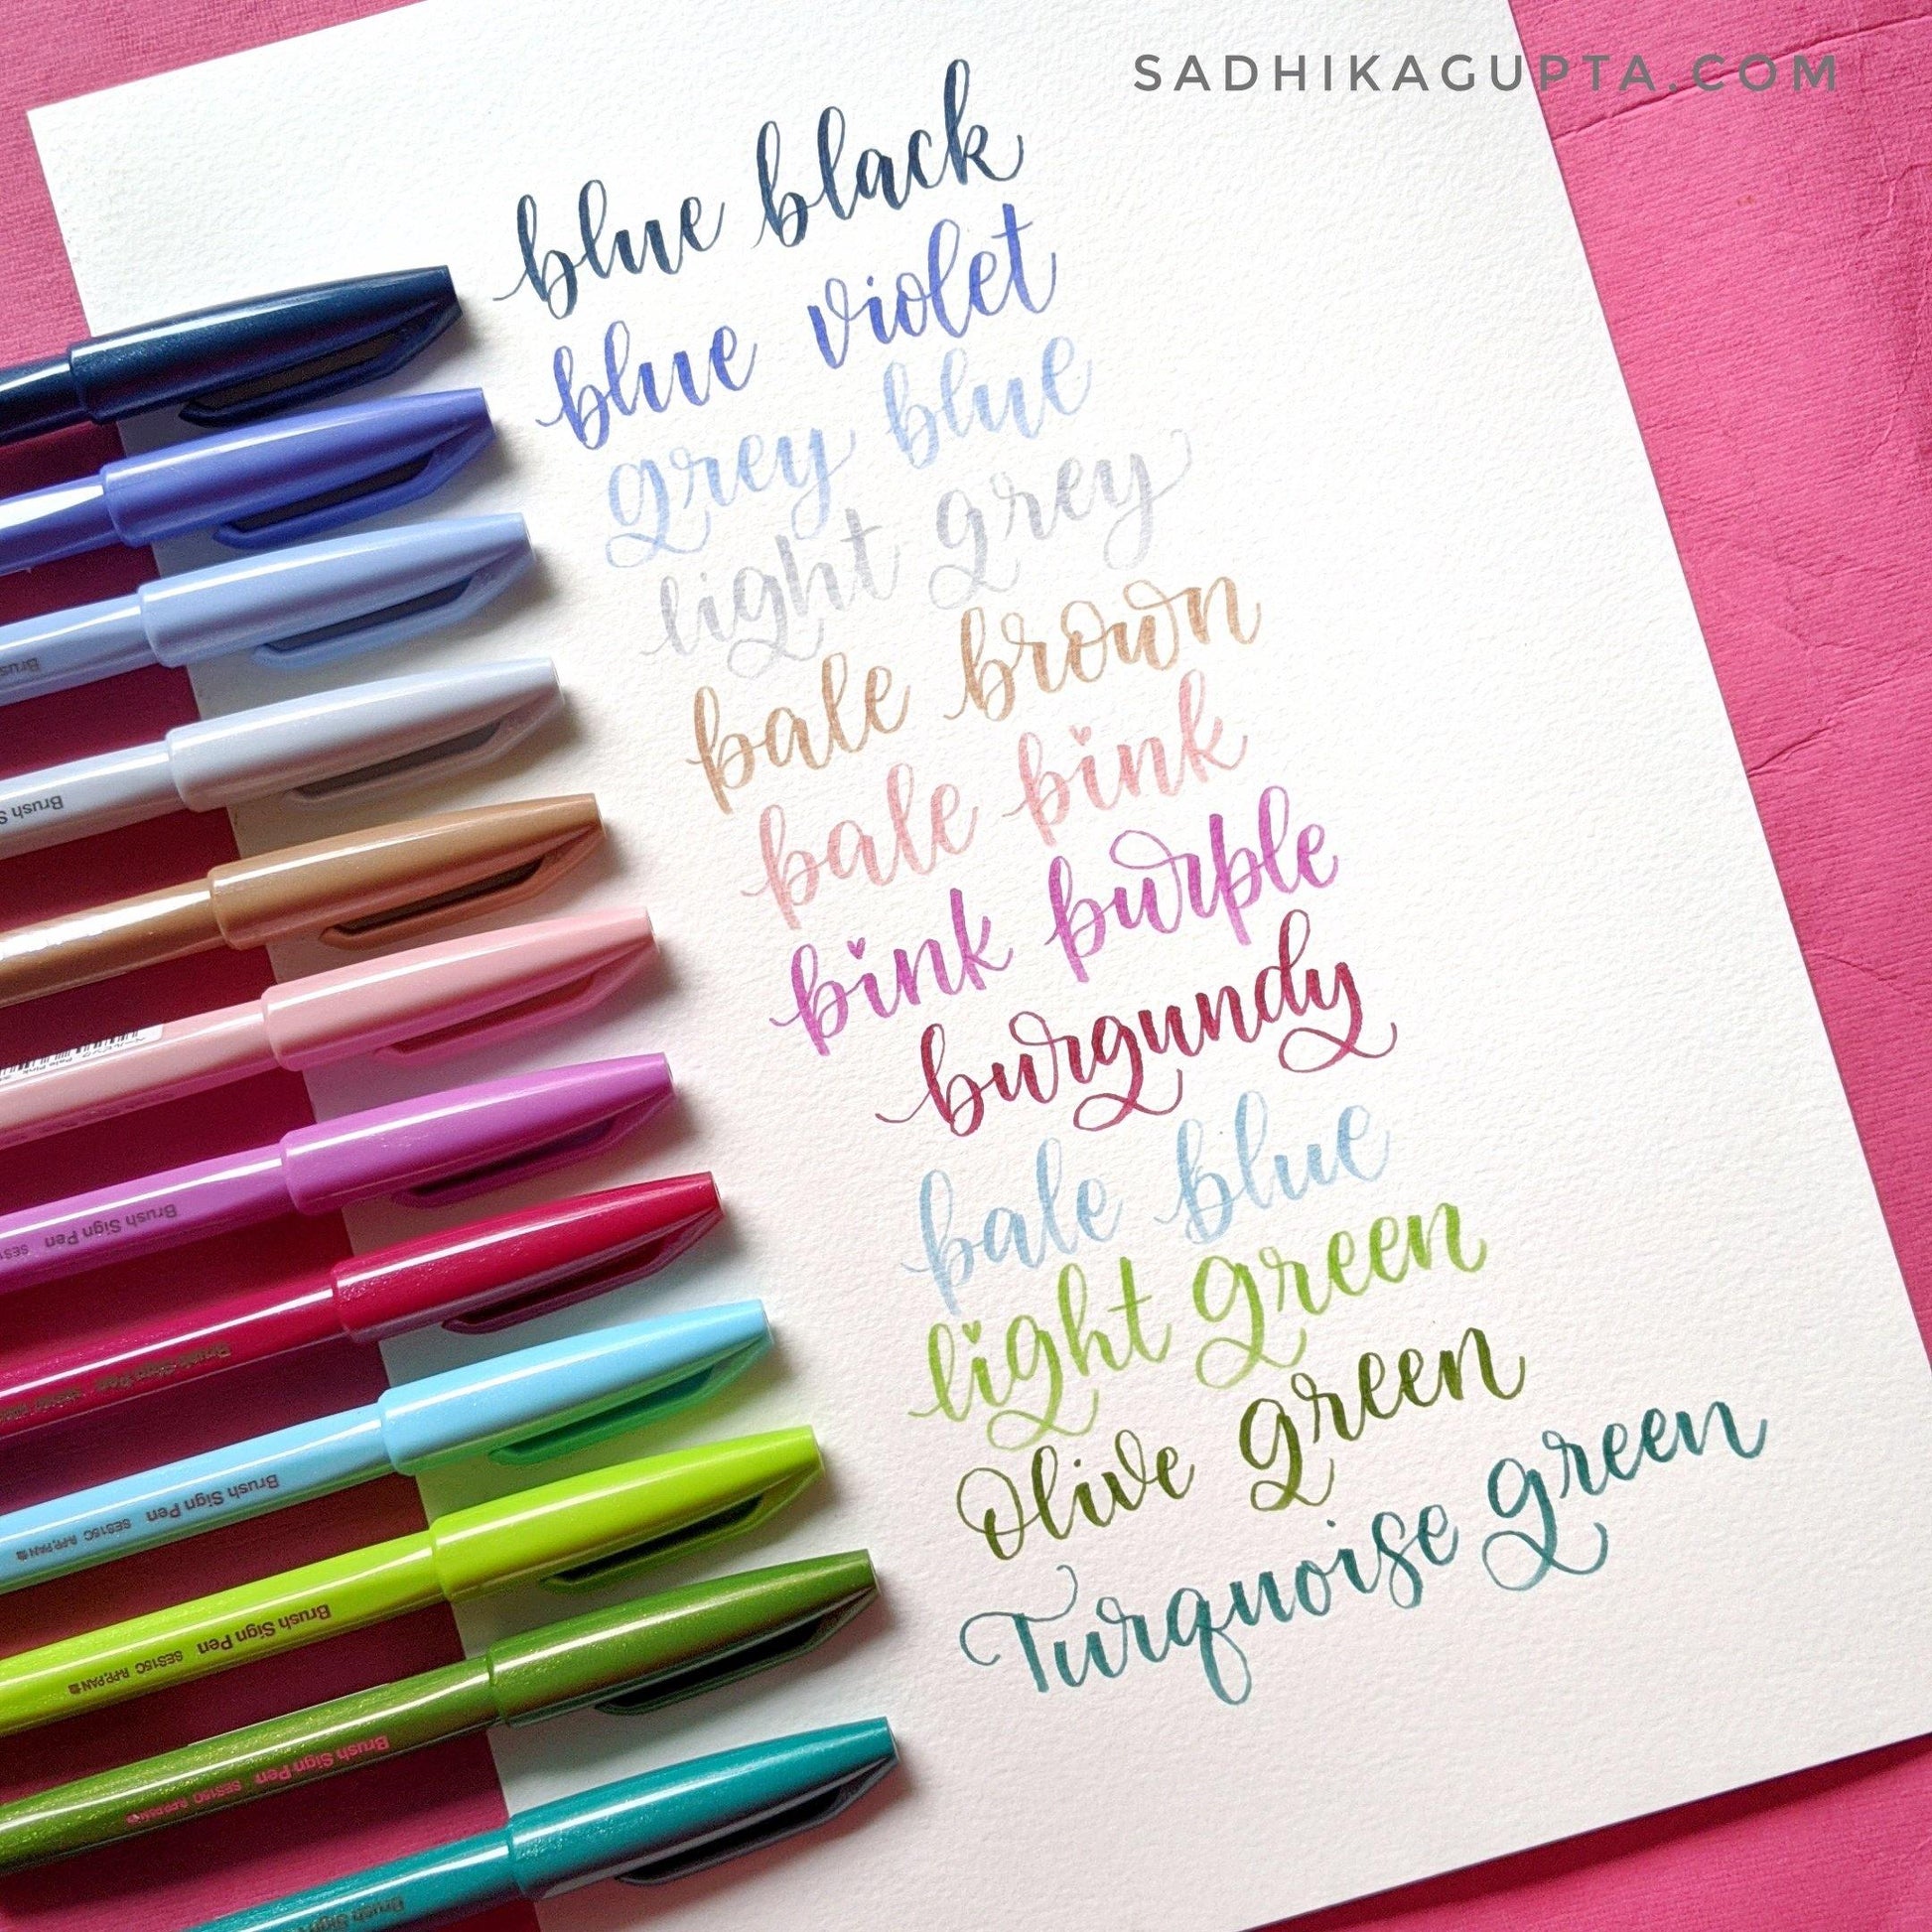 SADHIKAGUPTA.COM
blue black
blue violet
grey blue
light grey
pale brown
pale pink
pink purple
burgundy
pale blue
light green
Olive green
Turquoise green
Brush
Brush S
Brush Sign Pen
Brush Sign Pen
Brush Sign Pen SES15C
Brush Sign Pen SES15C
Brush Sign Pen SES15C
Brush Sign Pen